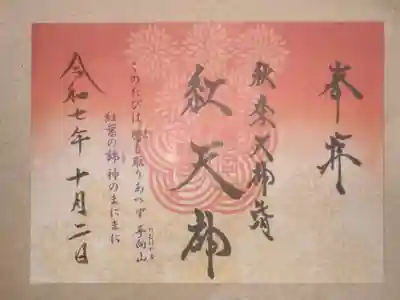 奉拝
秋季天都詣
秋天都
このたびは 幣も取りあへず 手向山
紅葉の錦 神のまにまに
令和七年十月二日